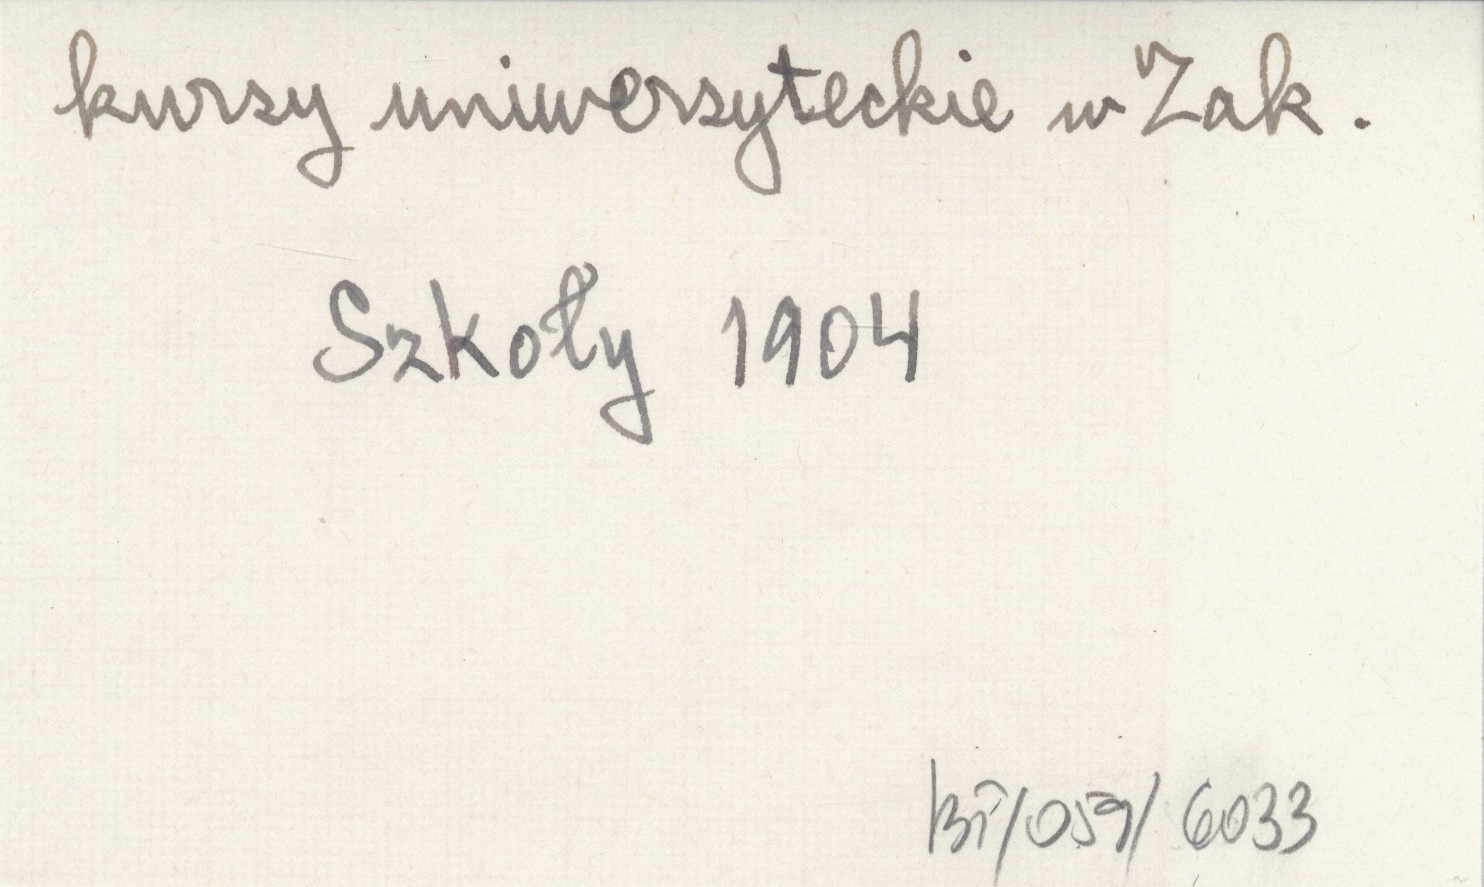 kursy uniwersyteckie w Zak.
Szkoły 1904
BT/059/6033